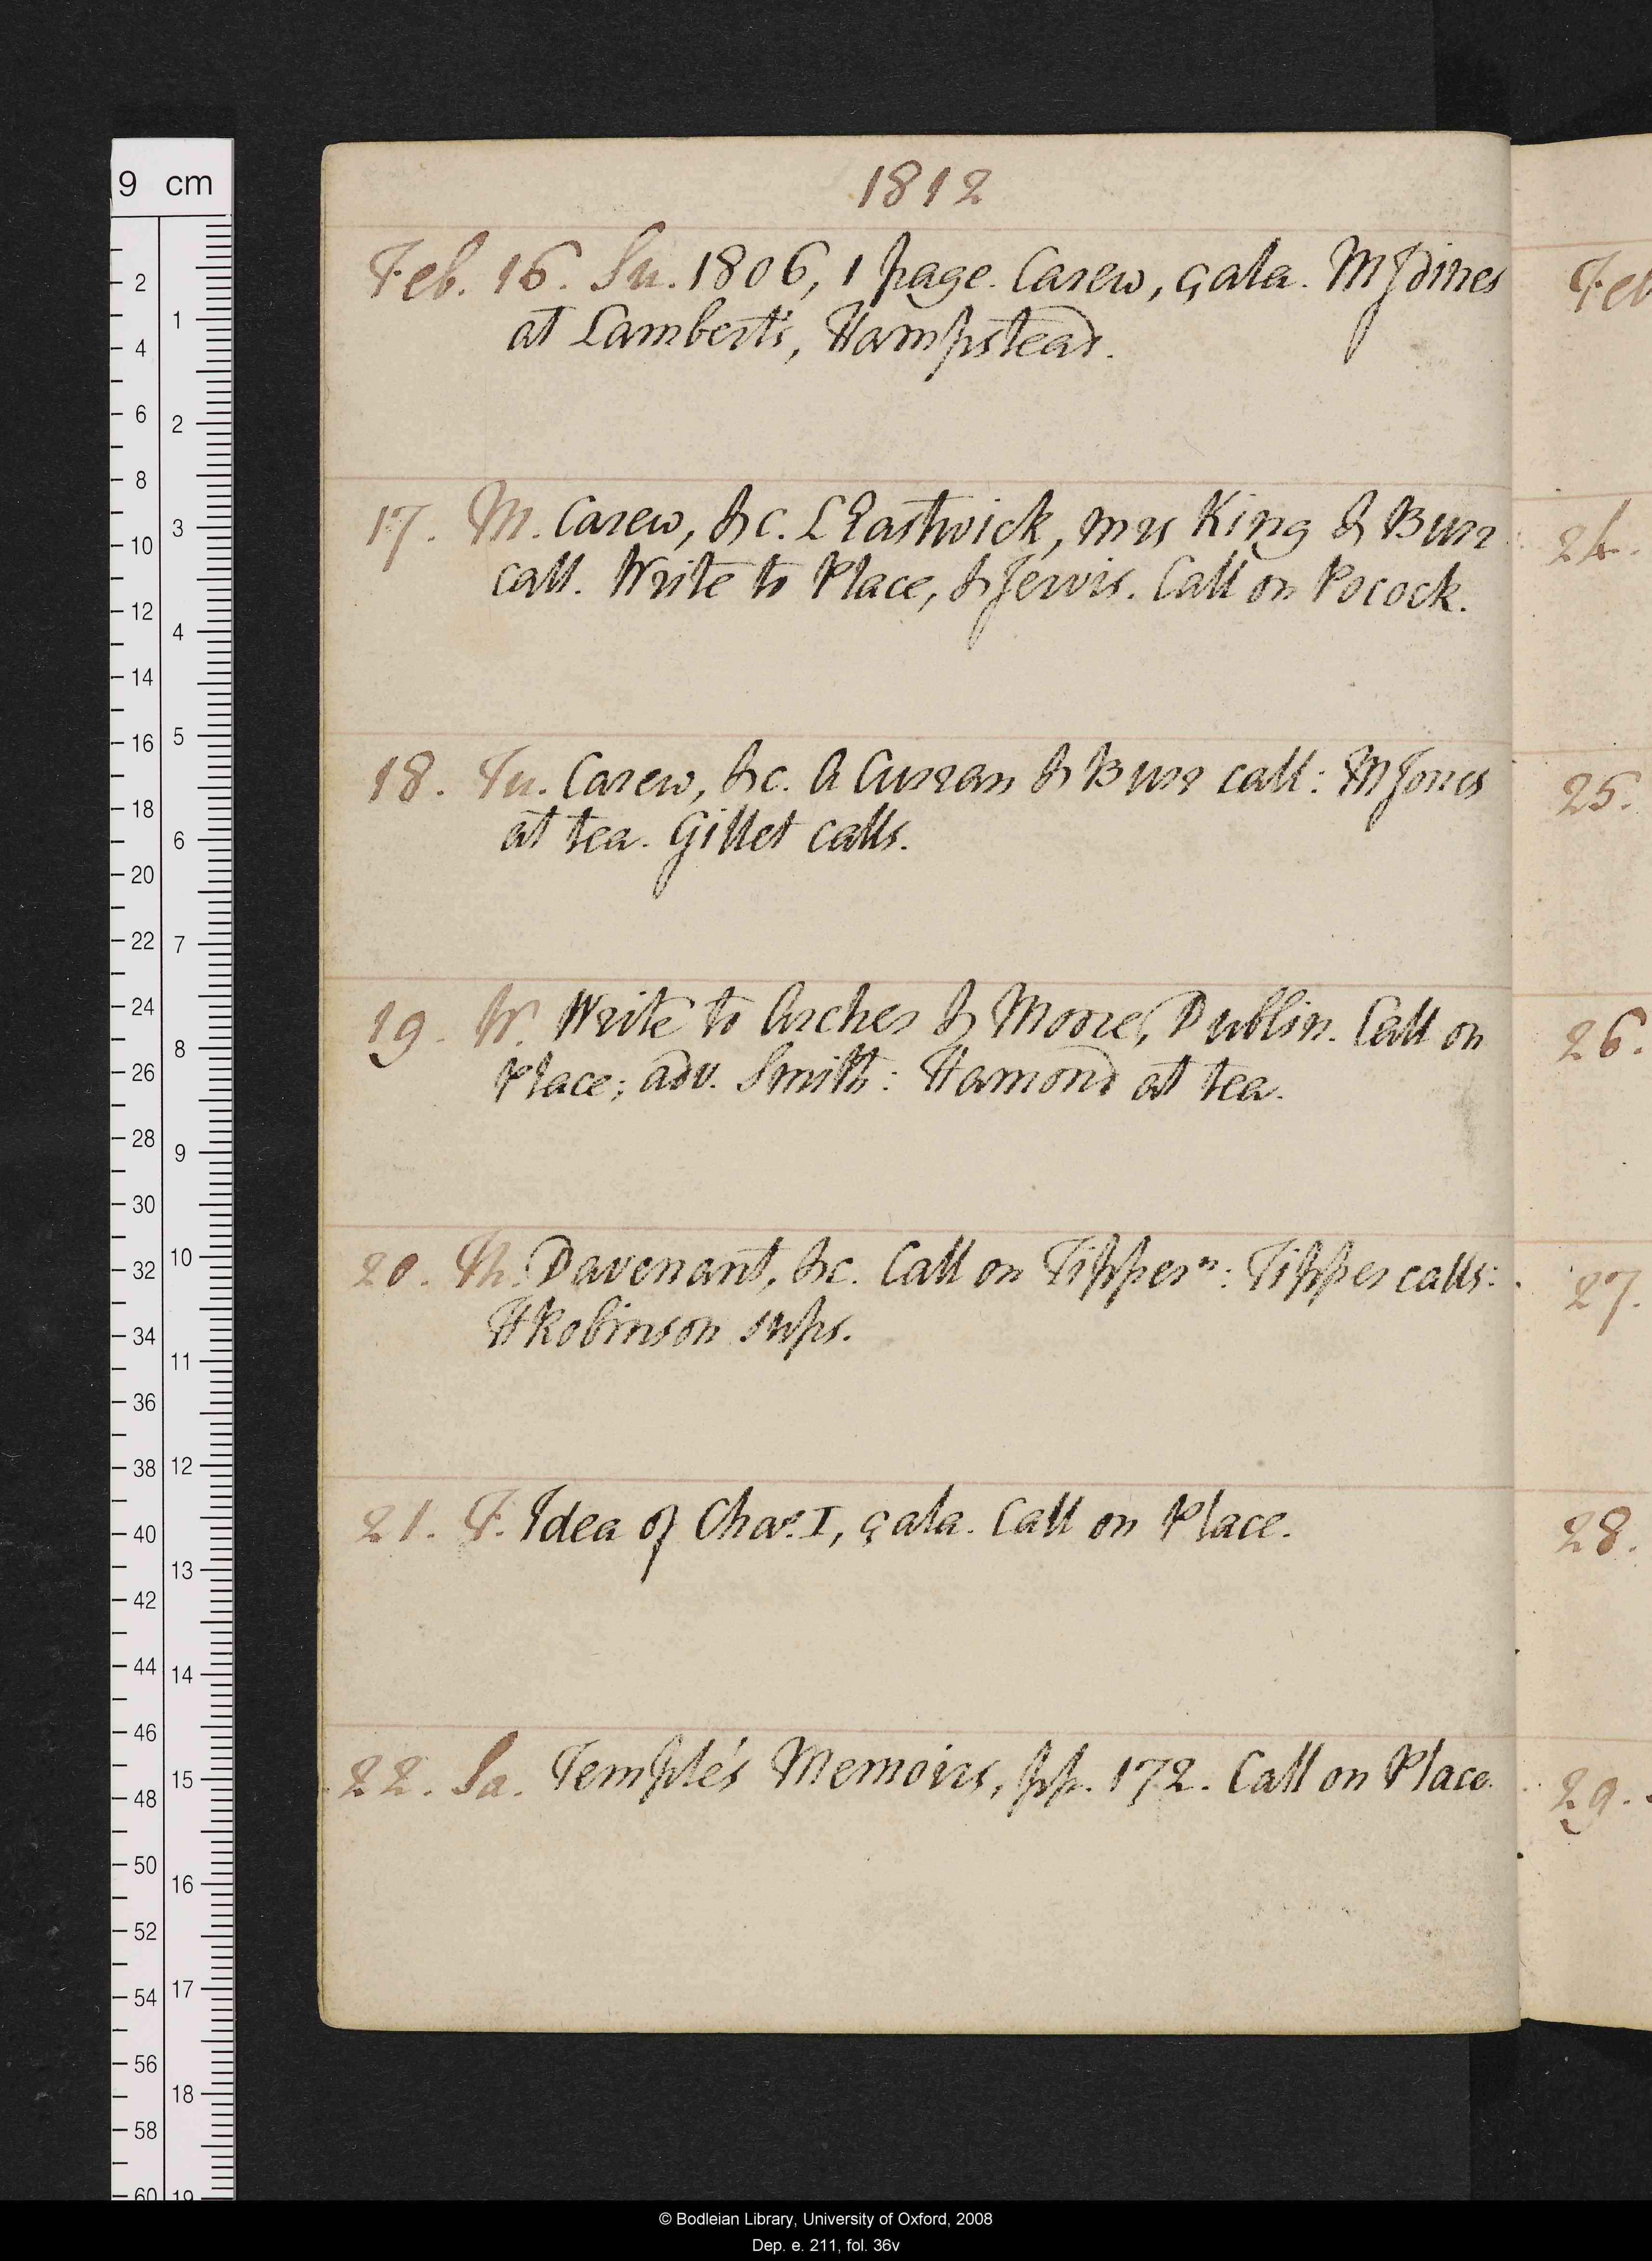 1812
Feb. 16. Su. 1806, 1 page. Carew, çala. MJ dines
at Lambert's, Hampstead.
17. M. Carew, &c. L Eastwick, mrs King & Burr
call. Write to Place, & Jervis. Call on Pocock.
18. Tu. Carew, &c. A Curran & Burr call: M Jones
at tea. Gillet calls.
19. W. Write to Archer & Moore, Dublin. Call on
Place; adv. Smith: Hamond at tea.
20. Th. Davenant, &c. Call on Tipper n: Tipper calls:
H Robinson sups.
21. F. Idea of Chas. I, çala. Call on Place.
22. Sa. Temple's Memoirs, pp. 172. Call on Place.
Feb
24.
25.
26.
27.
28.
29.
9 cm
2 4 6 8 10 12 14 16 18 20 22 24 26 28 30 32 34 36 38 40 42 44 46 48 50 52 54 56 58 60
1 2 3 4 5 6 7 8 9 10 11 12 13 14 15 16 17 18 19
© Bodleian Library, University of Oxford, 2008
Dep. e. 211, fol. 36v